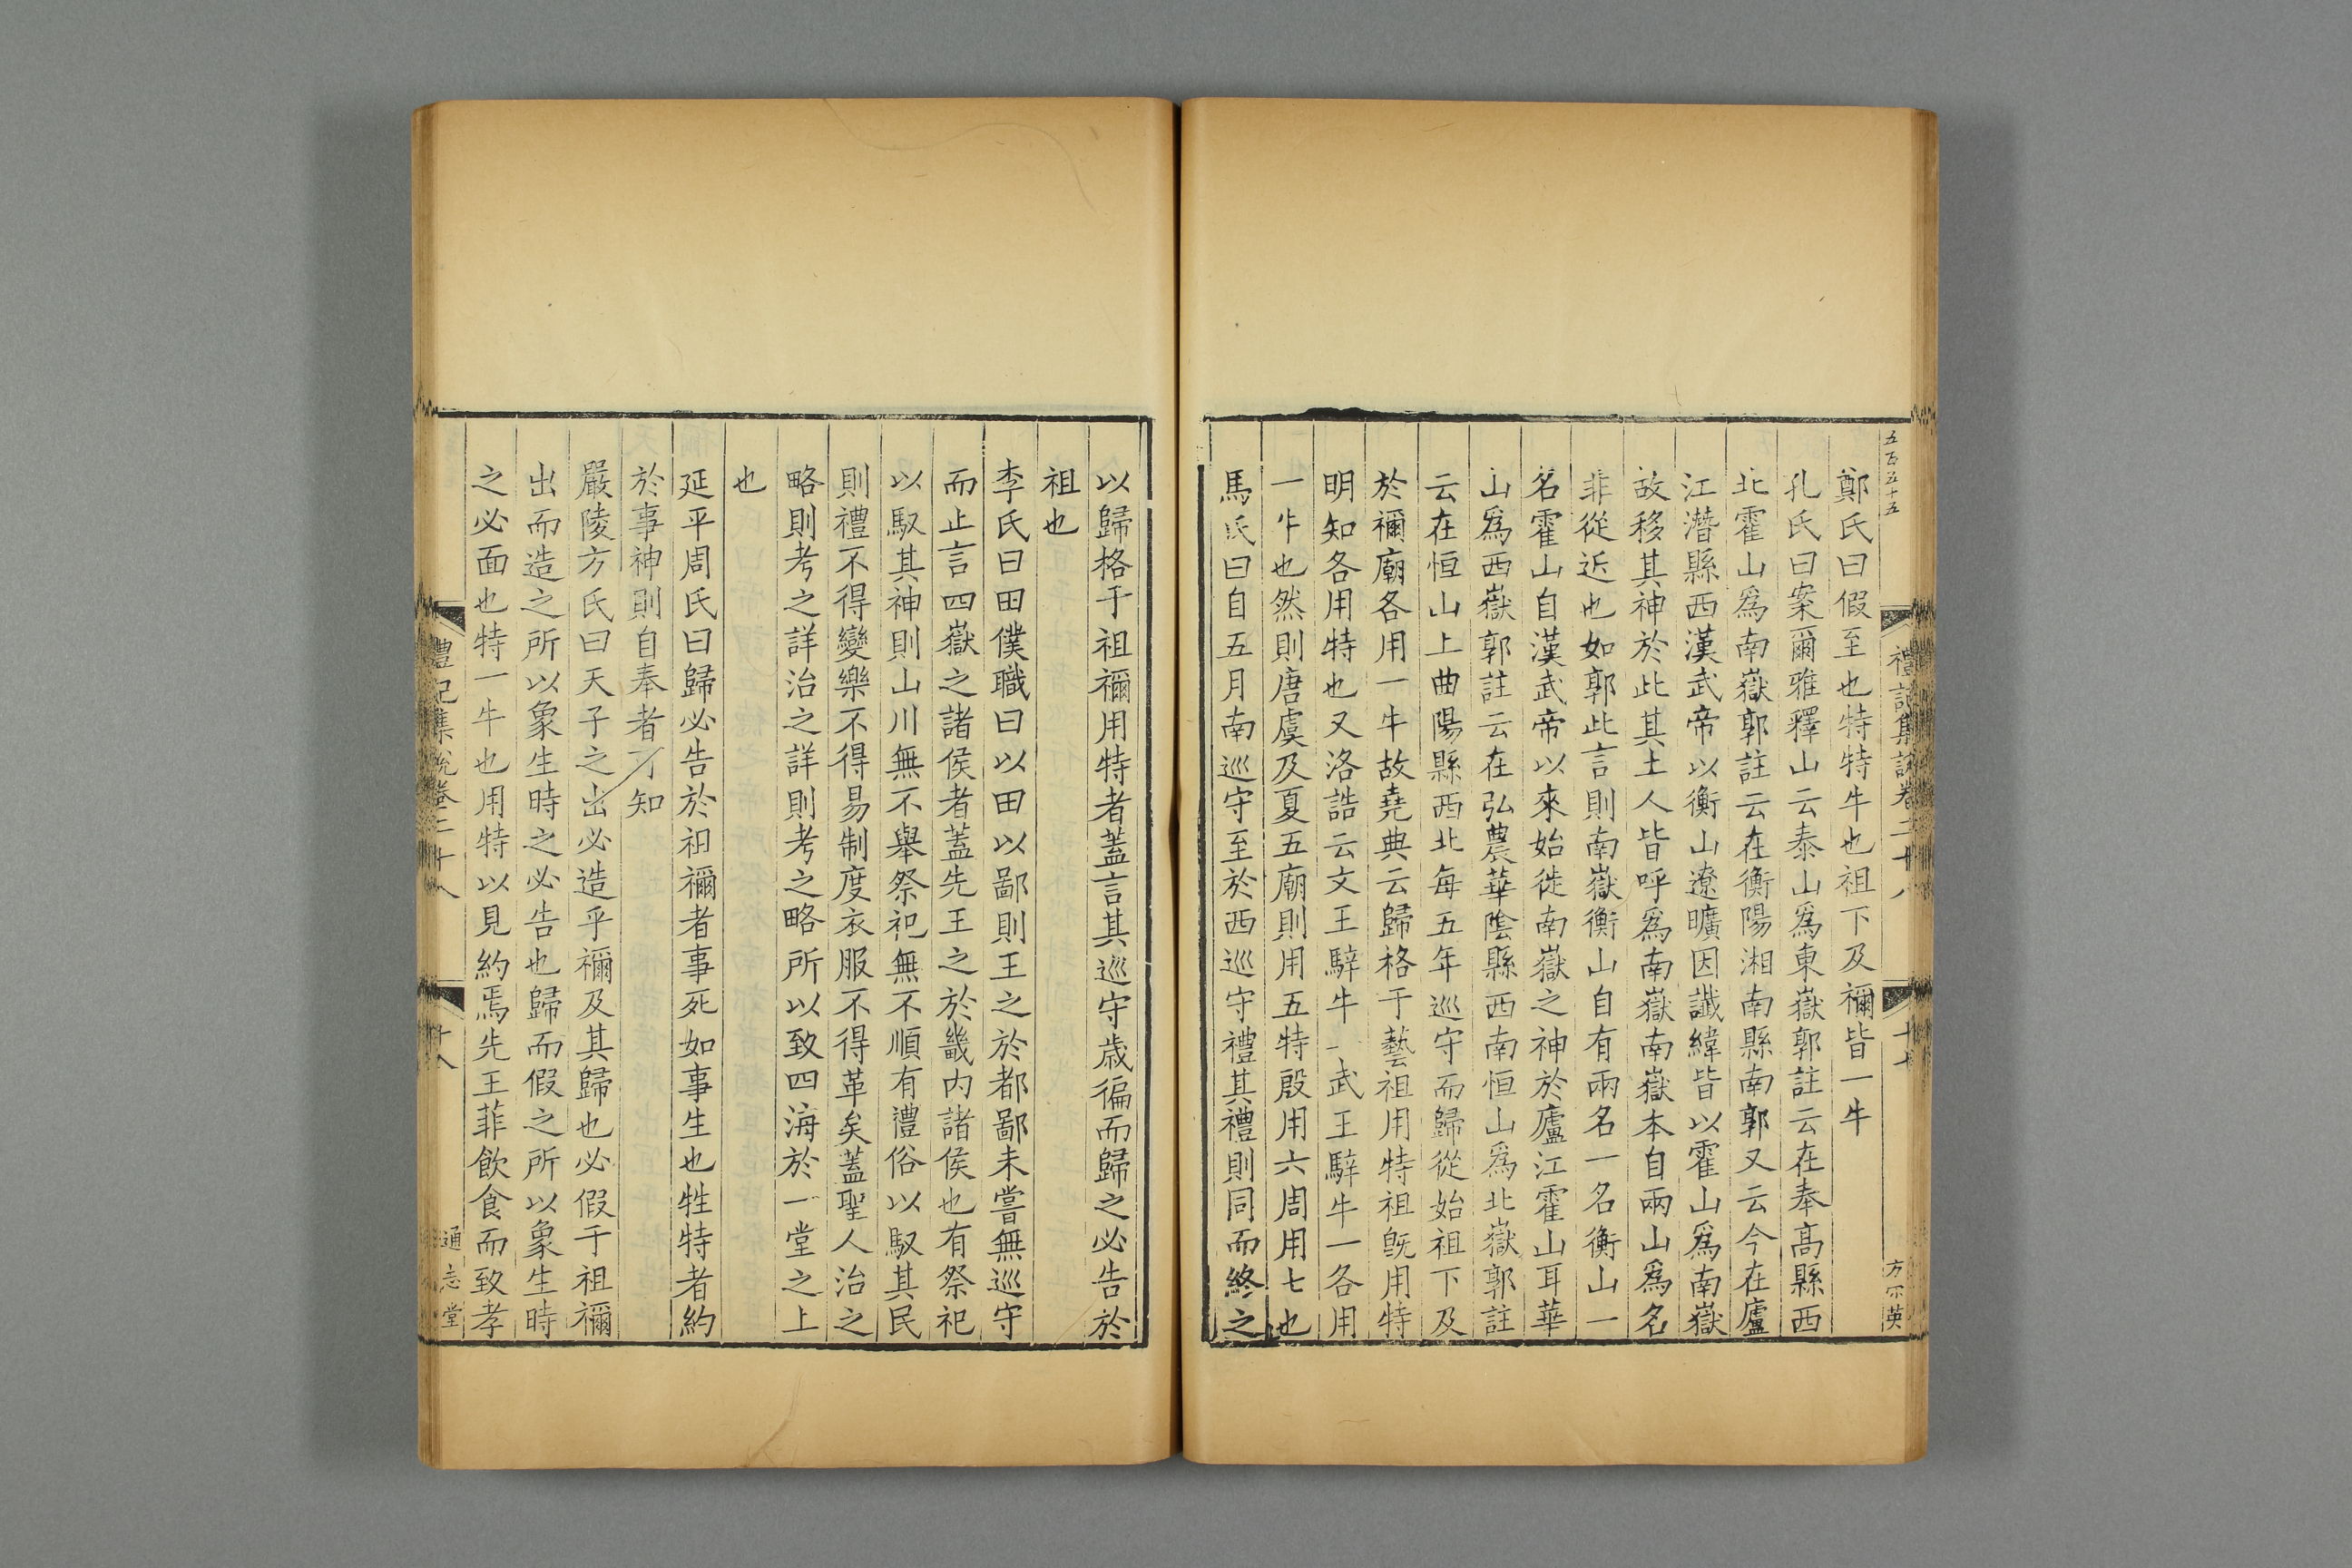 五百五十五
禮記集說卷二十八
十七
方宗英
鄭氏曰假至也特特牛也祖下及禰皆一牛
孔氏曰案爾雅釋山云泰山爲東嶽郭註云在奉高縣西
北霍山爲南嶽郭註云在衡陽湘南縣南郭又云今在廬
江潛縣西漢武帝以衡山遼曠因讖緯皆以霍山爲南嶽
故移其神於此其土人皆呼爲南嶽南嶽本自兩山爲名
非從近也如郭此言則南嶽衡山自有兩名一名衡山一
名霍山自漢武帝以來始徙南嶽之神於廬江霍山耳華
山爲西嶽郭註云在弘農華陰縣西南恒山爲北嶽郭註
云在恒山上曲陽縣西北每五年巡守而歸從始祖下及
於禰廟各用一牛故堯典云歸格于藝祖用特祖旣用特
明知各用特也又洛誥云文王騂牛一武王騂牛一各用
一牛也然則唐虞及夏五廟則用五特殷用六周用七也
馬氏曰自五月南巡守至於西巡守禮其禮則同而終之
以歸格于祖禰用特者蓋言其巡守歲徧而歸之必告於
祖也
李氏曰田僕職曰以田以鄙則王之於都鄙未嘗無巡守
而止言四嶽之諸侯者蓋先王之於畿内諸侯也有祭祀
以馭其神則山川無不舉祭祀無不順有禮俗以馭其民
則禮不得變樂不得易制度衣服不得革矣蓋聖人治之
略則考之詳治之詳則考之略所以致四海於一堂之上
也
延平周氏曰歸必告於祖禰者事死如事生也牲特者約
於事神則自奉者可知
嚴陵方氏曰天子之出必造乎禰及其歸也必假于祖禰
出而造之所以象生時之必告也歸而假之所以象生時
之必面也特一牛也用特以見約焉先王菲飲食而致孝
禮記集說卷二十八
十八
通志堂